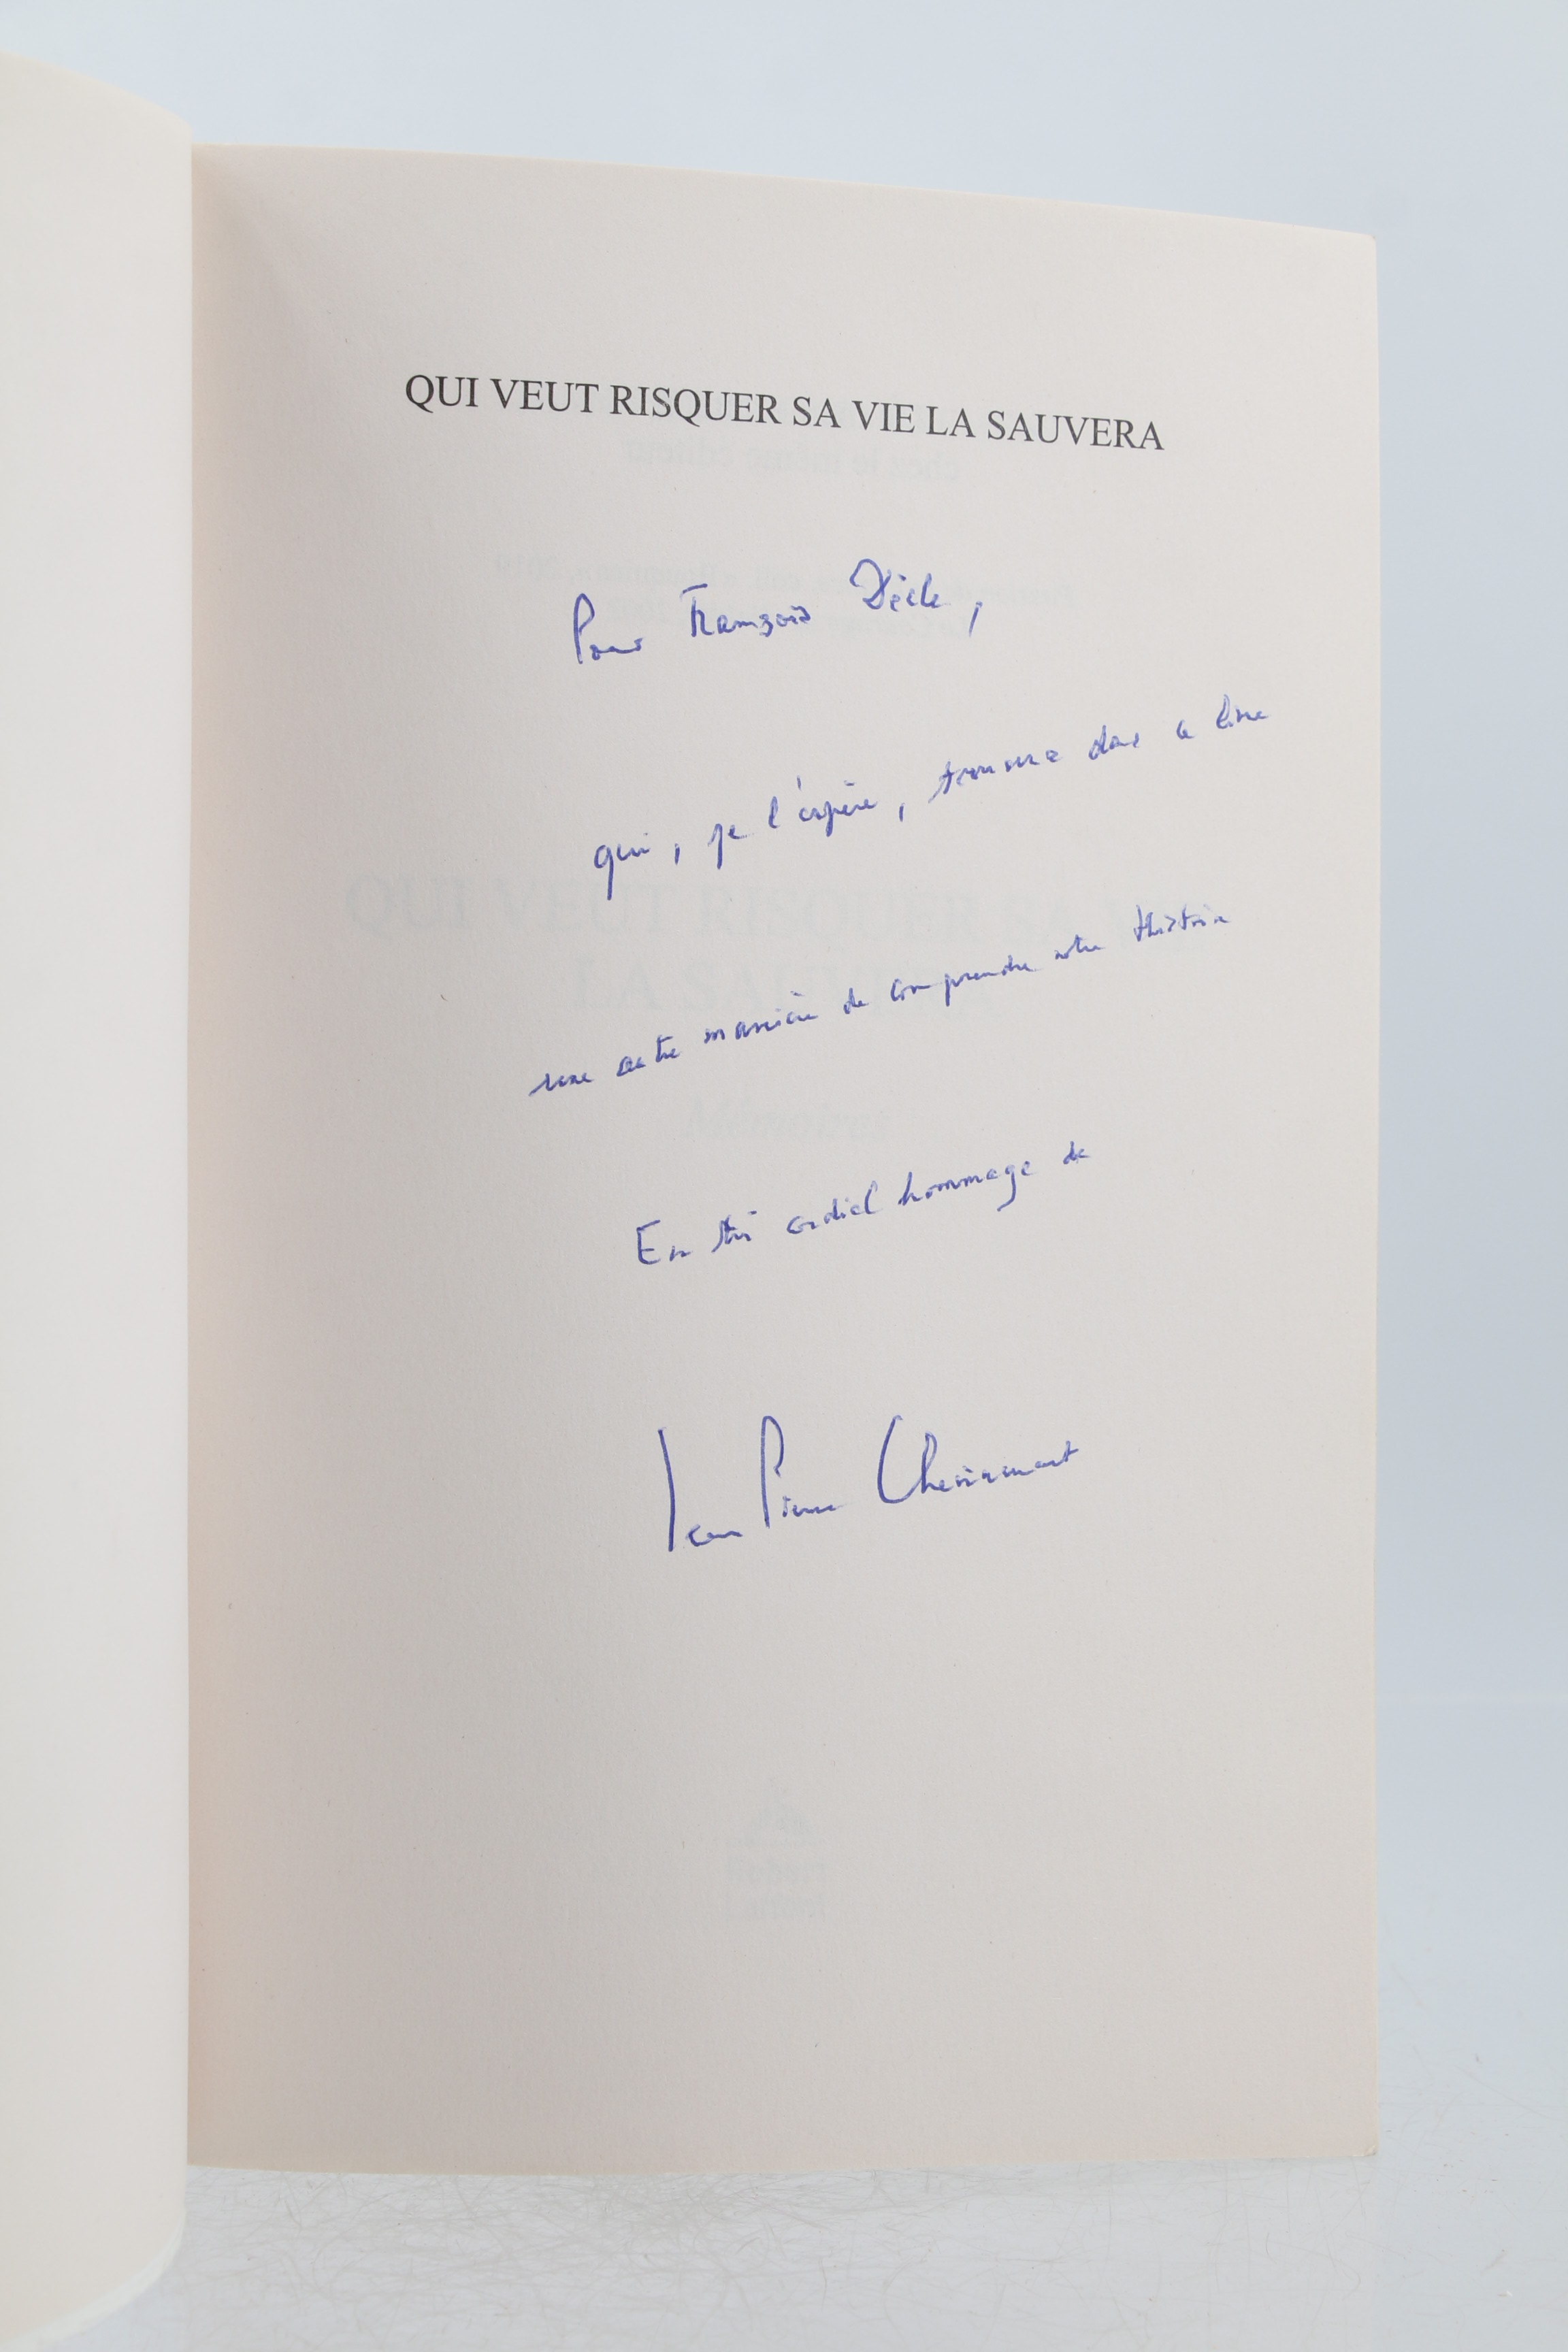 QUI VEUT RISQUER SA VIE LA SAUVERA
Pour François
qui, je l'espère, trouvera dans ce livre
une autre manière de comprendre notre Histoire
En très cordial hommage de
Jean Pierre Chevènement
Mémoires